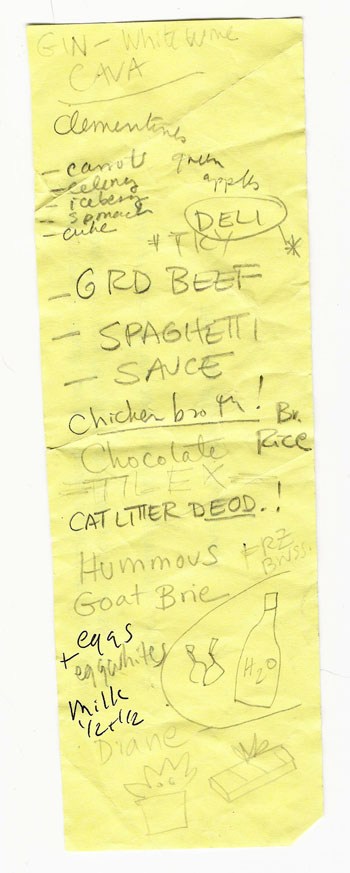 GIN - White wine
CAVA
clementines
- carrots green
- celery apples
- iceberg
- spinach
- cuke
DELI
# TKY *
- GRD BEEF
- SPAGHETTI
- SAUCE
Chicken broth! Br.
Rice
Chocolate
TILEX
CAT LITTER DEOD.!
Hummous FRZ
Goat Brie
eggs
+ eggwhites
H2O
Milk
1/2 + 1/2
Diane